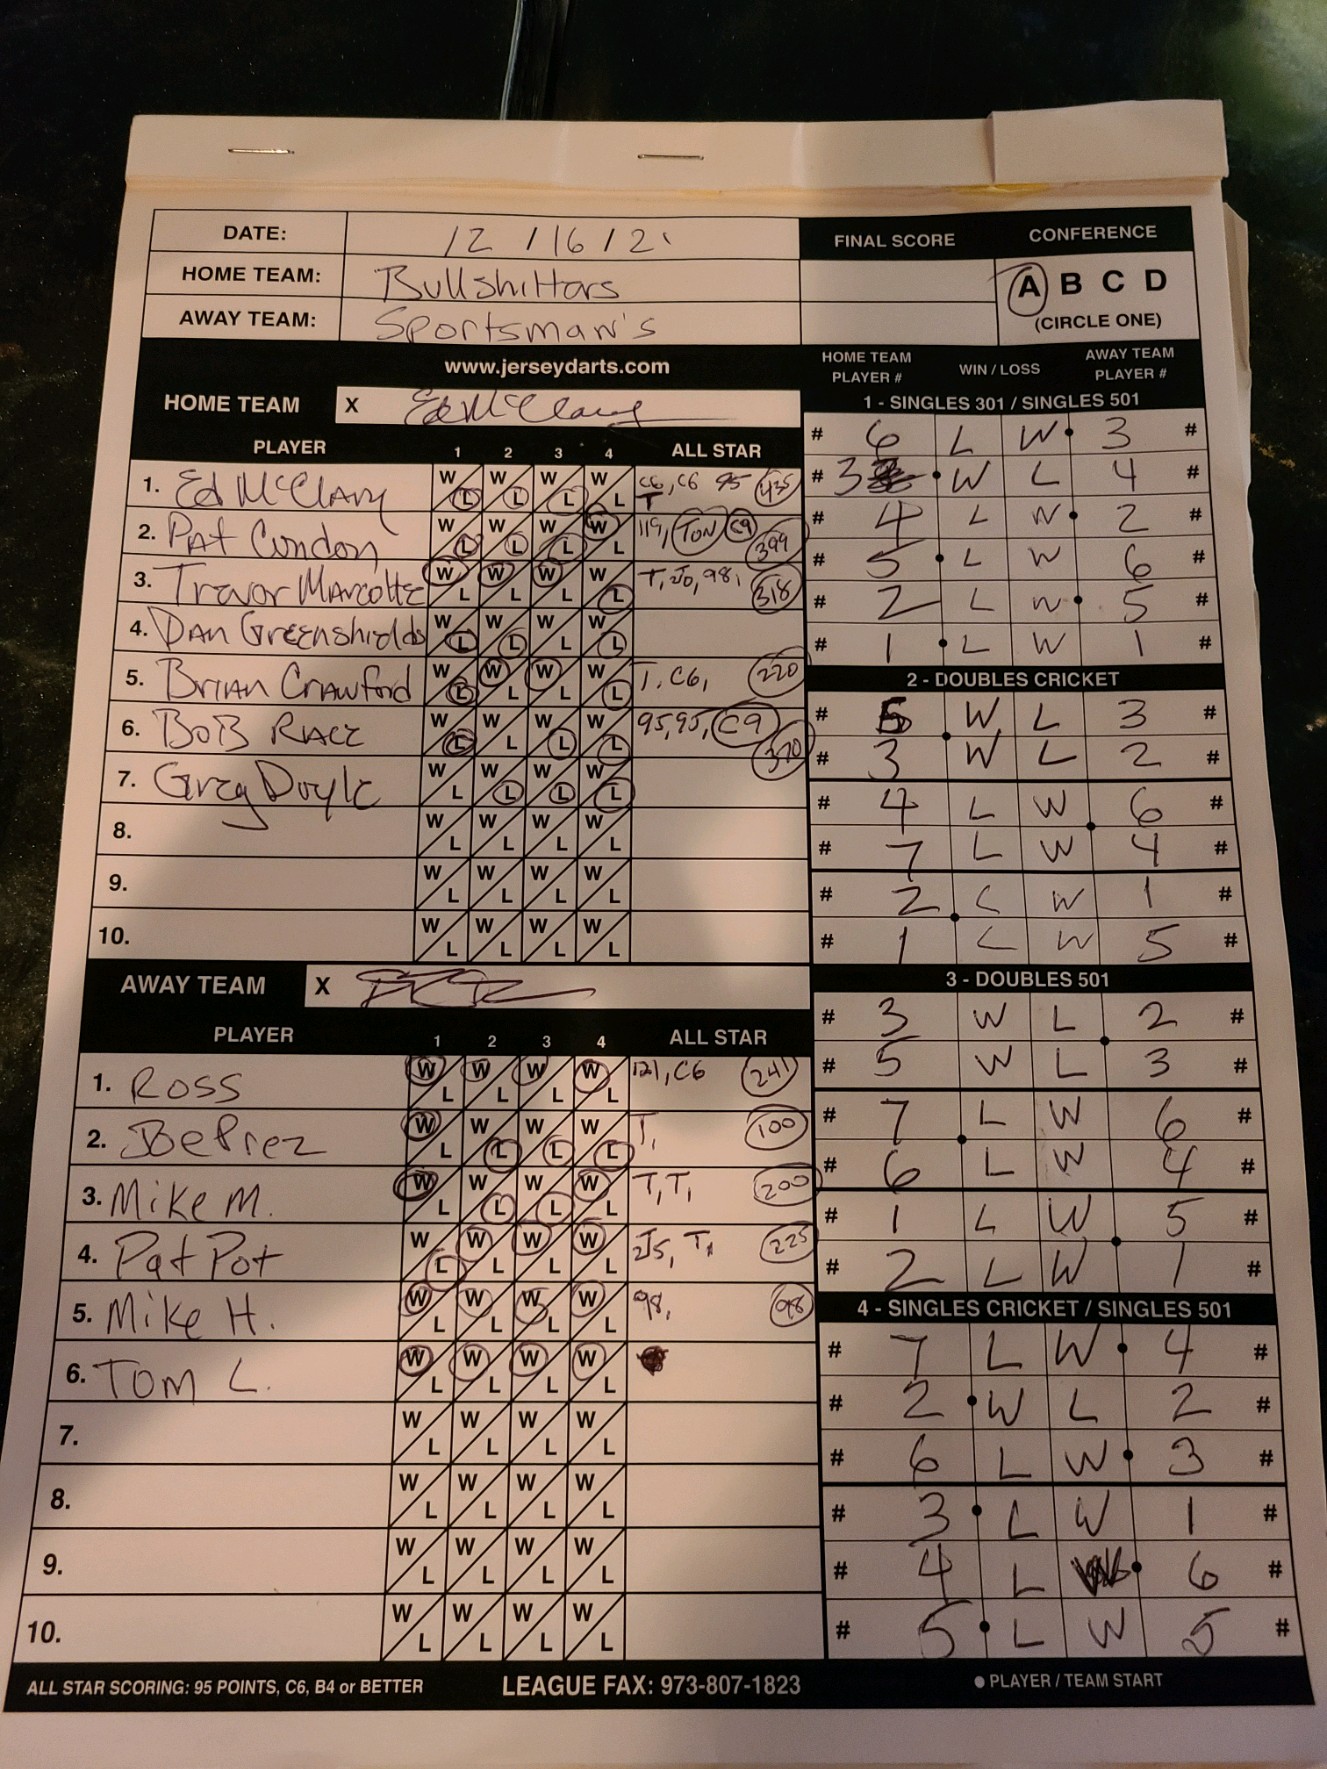 DATE: 12 / 16 / 21
FINAL SCORE CONFERENCE
HOME TEAM: Bullshittars
A B C D
AWAY TEAM: Sportsman's
(CIRCLE ONE)
www.jerseydarts.com
HOME TEAM X Ed McClary
PLAYER 1 2 3 4 ALL STAR
1. Ed McClary W L W L W L W L C6, C6 95 T 435
2. Pat Condon W L W L W L W L 119, TON C9 399
3. Trevor Marcotte W L W L W L W L T, 20, 98, 318
4. Dan Greenshields W L W L W L W L
5. Brian Crawford W L W L W L W L T, C6, 220
6. Bob Race W L W L W L W L 95, 95, C9 370
7. Greg Doyle W L W L W L W L
8. W L W L W L W L
9. W L W L W L W L
10. W L W L W L W L
AWAY TEAM X
PLAYER 1 2 3 4 ALL STAR
1. Ross W L W L W L W L 121, C6 241
2. BePrez W L W L W L W L T, 100
3. Mike M. W L W L W L W L T, T, 200
4. Pat Pot W L W L W L W L 25, T, 225
5. Mike H. W L W L W L W L 98, 98
6. TOM L. W L W L W L W L
7. W L W L W L W L
8. W L W L W L W L
9. W L W L W L W L
10. W L W L W L W L
HOME TEAM PLAYER # WIN / LOSS AWAY TEAM PLAYER #
1 - SINGLES 301 / SINGLES 501
# 6 L W 3 #
# 3 W L 4 #
# 4 L W 2 #
# 5 L W 6 #
# 2 L W 5 #
# 1 L W 1 #
2 - DOUBLES CRICKET
# 5 W L 3 #
# 3 W L 2 #
# 4 L W 6 #
# 7 L W 4 #
# 2 L W 1 #
# 1 L W 5 #
3 - DOUBLES 501
# 3 W L 2 #
# 5 W L 3 #
# 7 L W 6 #
# 6 L W 4 #
# 1 L W 5 #
# 2 L W 1 #
4 - SINGLES CRICKET / SINGLES 501
# 7 L W 4 #
# 2 W L 2 #
# 6 L W 3 #
# 3 L W 1 #
# 4 L W 6 #
# 5 L W 5 #
ALL STAR SCORING: 95 POINTS, C6, B4 or BETTER
LEAGUE FAX: 973-807-1823
● PLAYER / TEAM START